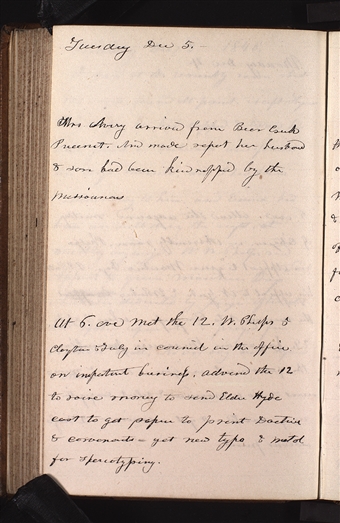 Tuesday Dec 5.
Mrs Avery arrived from Bear Creek
Precinct. And made repot her husband
& son had been kidnapped by the
missourians
At 6. eve met the 12. W. Phelps &
in council in the office
on important business, advised the 12
to raise money to send Elder Hyde
east to get paper to print Doctrine
& covenants - get new type & metal
for sterotyping.